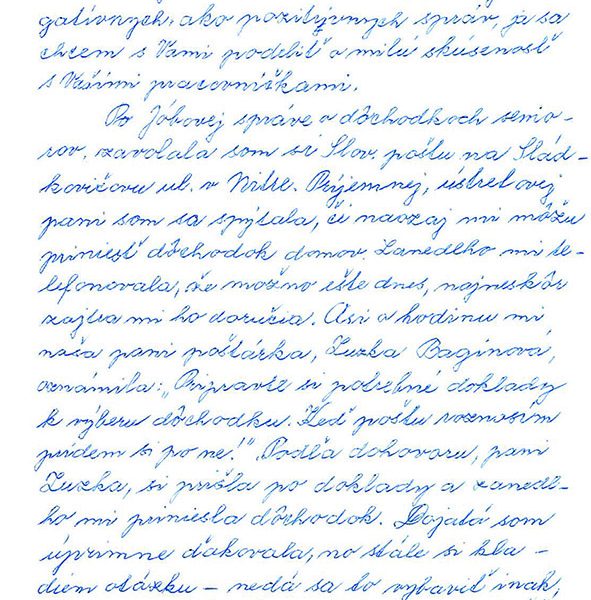 gatívnych, ako pozitývnych správ, ja sa
chcem s Vami podeliť o milú skúsenosť
s Vašimi pracovníčkami.
Po Jóbovej správe o dôchodkoch senio-
rov, zavolala som si Slov. poštu na Slád-
kovičovu ul. v Nitre. Príjemnej, ústretovej
pani som sa spýtala, či naozaj mi môžu
priniesť dôchodok domov. Zanedlho mi te-
lefonovala, že možno ešte dnes, najneskôr
zajtra mi ho doručia. Asi o hodinu mi
naša pani poštárka, Zuzka Bagínová,
oznámila: „Pripravte si potrebné doklady
k výberu dôchodku. Keď poštu roznosím
prídem si po ne!" Podľa dohovoru, pani
Zuzka, si prišla po doklady a zanedl-
ho mi priniesla dôchodok. Dojatá som
úprimne ďakovala, no stále si kla-
diem otázku - nedá sa to vybaviť inak,